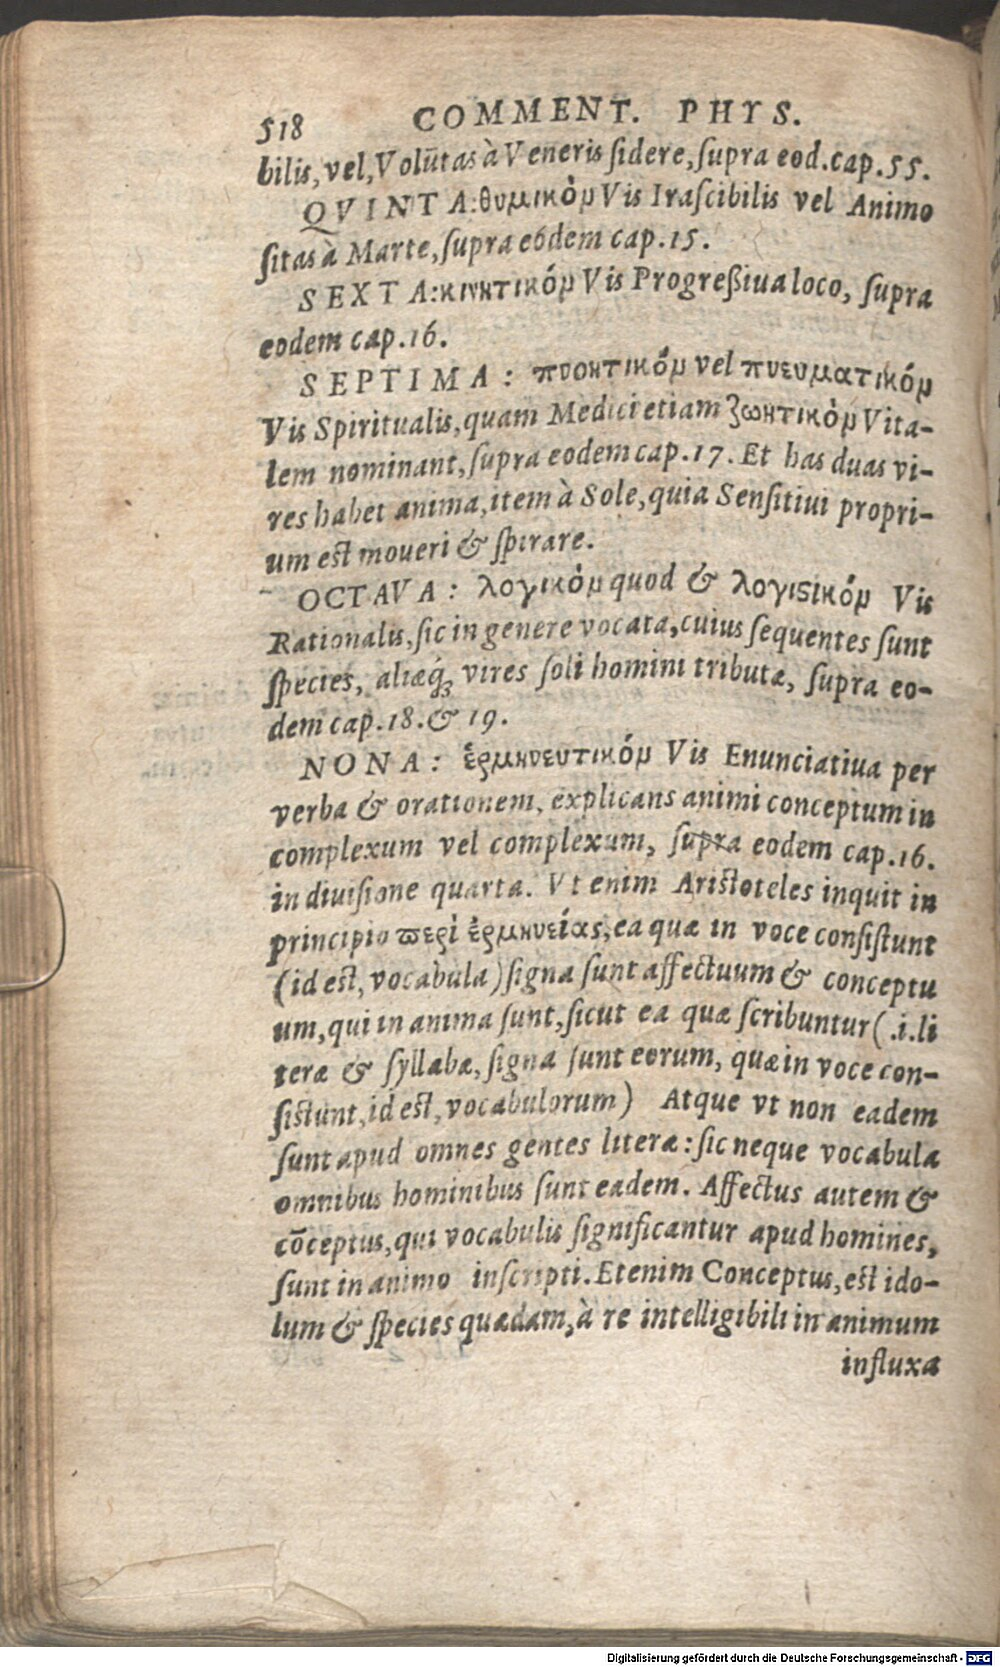 518 COMMENT. PHYS.
bilis, vel, Volūtas à Veneris sidere, supra eod. cap. 55.
QVINTA: θυμικὸν Vis Irascibilis vel Animo
sitas à Marte, supra eódem cap. 15.
SEXTA: κινητικόν Vis Progreßiua loco, supra
eodem cap. 16.
SEPTIMA: πνοητικὸν vel πνευματικόν
Vis Spiritualis, quam Medici etiam ζωητικὸν Vita-
lem nominant, supra eodem cap. 17. Et has duas vi-
res habet anima, item à Sole, quia Sensitiui propri-
um est moueri & spirare.
OCTAVA: λογικὸν quod & λογιϛικὸν Vis
Rationalis, sic in genere vocata, cuius sequentes sunt
species, aliæq́; vires soli homini tributæ, supra eo-
dem cap. 18. & 19.
NONA: ἑρμηνευτικόν Vis Enunciatiua per
verba & orationem, explicans animi conceptum in
complexum vel complexum, supra eodem cap. 16.
in diuisione quarta. Vt enim Aristoteles inquit in
principio ϖερὶ ἑρμηνείας, ea quæ in voce consistunt
(id est, vocabula) signa sunt affectuum & conceptu
um, qui in anima sunt, sicut ea quæ scribuntur (.i. li
teræ & syllabæ, signa sunt eorum, quæ in voce con-
sistunt, id est, vocabulorum) Atque vt non eadem
sunt apud omnes gentes literæ: sic neque vocabula
omnibus hominibus sunt eadem. Affectus autem &
cōceptus, qui vocabulis significantur apud homines,
sunt in animo inscripti. Etenim Conceptus, est ido-
lum & species quædam, à re intelligibili in animum
influxa
Digitalisierung gefördert durch die Deutsche Forschungsgemeinschaft - DFG